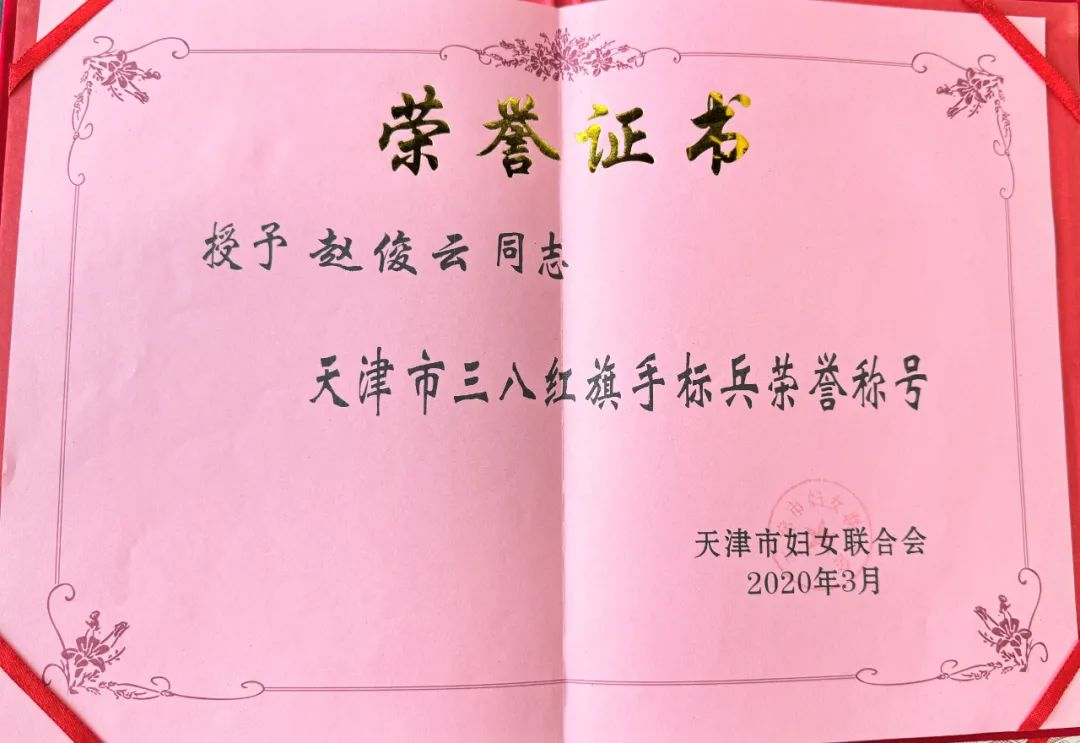 荣誉证书
授予赵俊云同志
天津市三八红旗手标兵荣誉称号
天津市妇女联合会
2020年3月